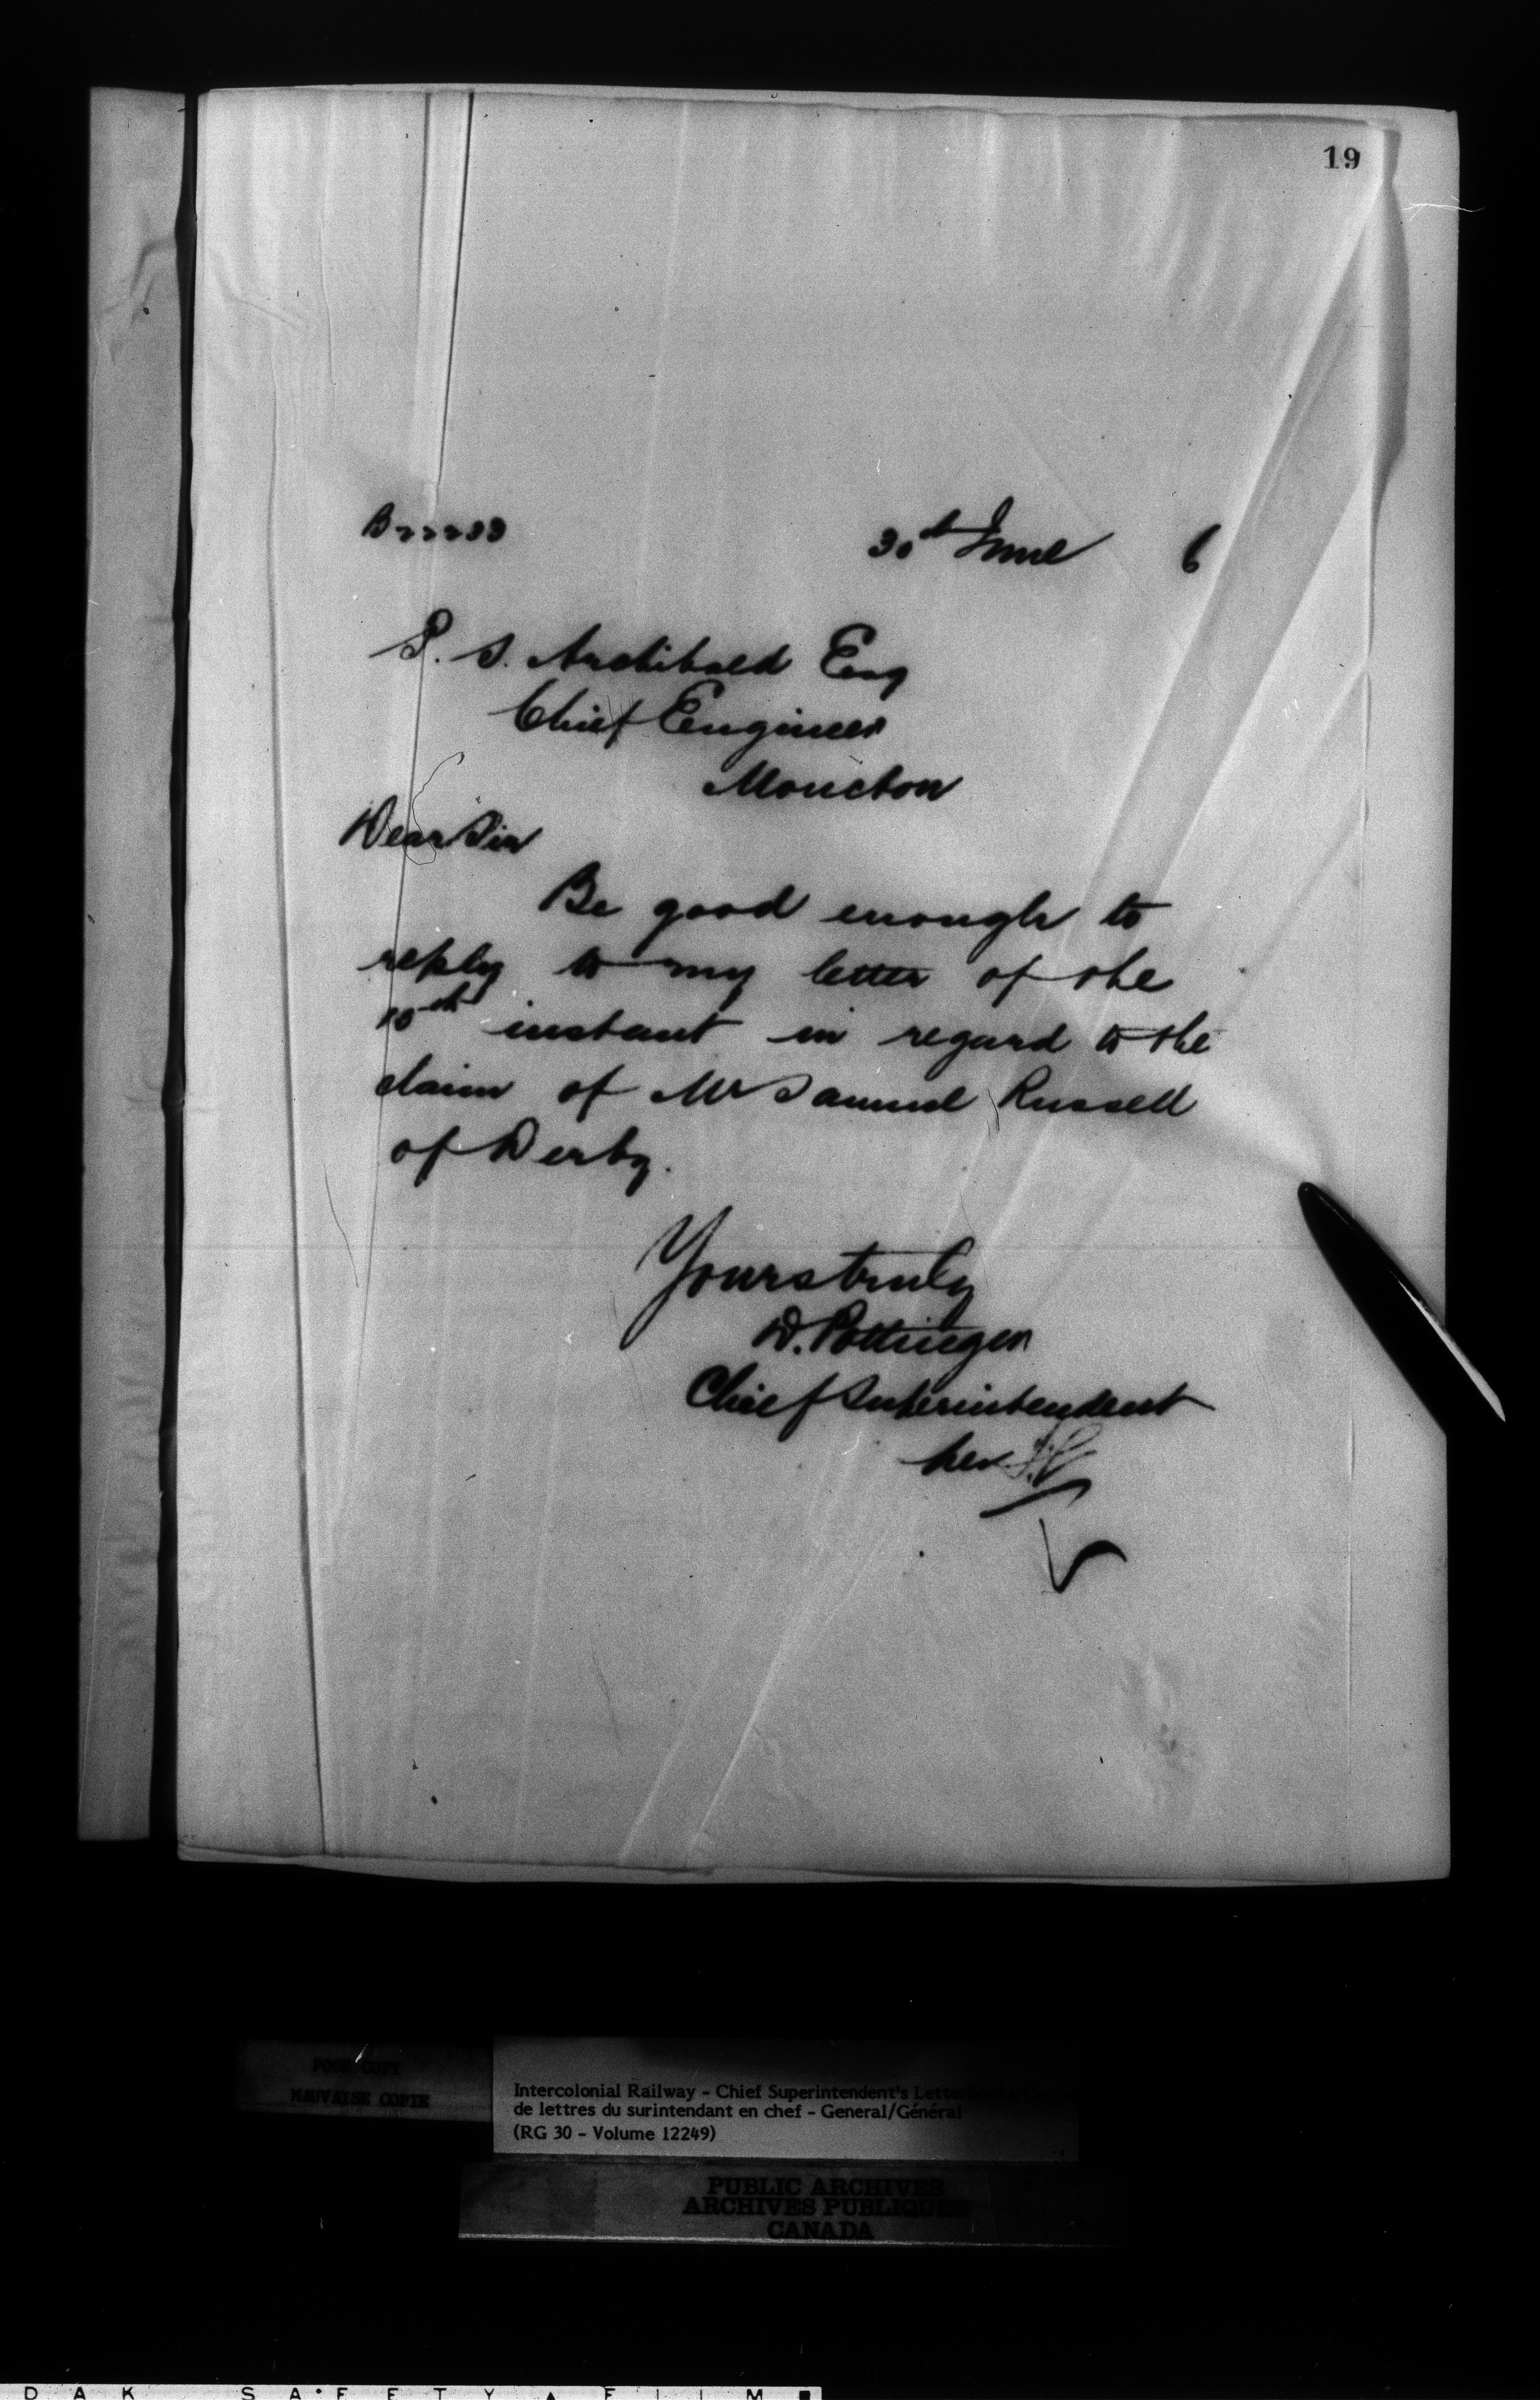 19
B22233
30th June 6
P. S. Archibald Esq
Chief Engineer
Moncton
Dear Sir
Be good enough to
reply to my letter of the
10th instant in regard to the
claim of Mr Samuel Russell
of Derby.
Yours truly
D. Pottinger
Chief Superintendent
per
POOR COPY
MAUVAISE COPIE
Intercolonial Railway - Chief Superintendent's
de lettres du surintendant en chef - General/Général
(RG 30 - Volume 12249)
PUBLIC ARCHIVES
ARCHIVES PUBLIQUES
CANADA
DAK SAFETY FILM